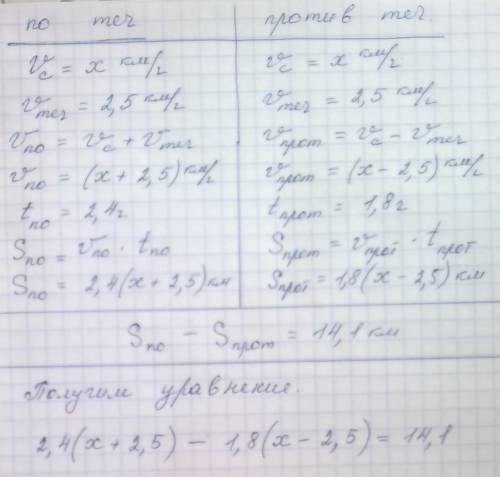 по теч против теч.
v_c = x км/г v_c = x км/г
v_теч = 2,5 км/г v_теч = 2,5 км/г
v_по = v_c + v_теч v_прот = v_c - v_теч
v_по = (x + 2,5) км/г v_прот = (x - 2,5) км/г
t_по = 2,4г t_прот = 1,8г
S_по = v_по · t_по S_прот = v_прот · t_прот
S_по = 2,4(x + 2,5) км S_прот = 1,8(x - 2,5) км
S_по - S_прот = 14,1 км
Получим уравнение.
2,4(x + 2,5) - 1,8(x - 2,5) = 14,1